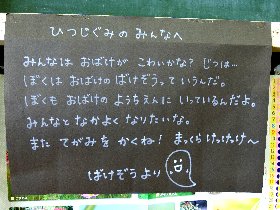 ひつじぐみのみんなへ
みんなは おばけが こわいかな? じつは…
ぼくは おばけの ばけぞうって いうんだ。
ぼくも おばけの ようちえんに いっているんだよ。
みんなと なかよく なりたいな。
また てがみを かくね! まっくら けっけけ〜
ばけぞう より